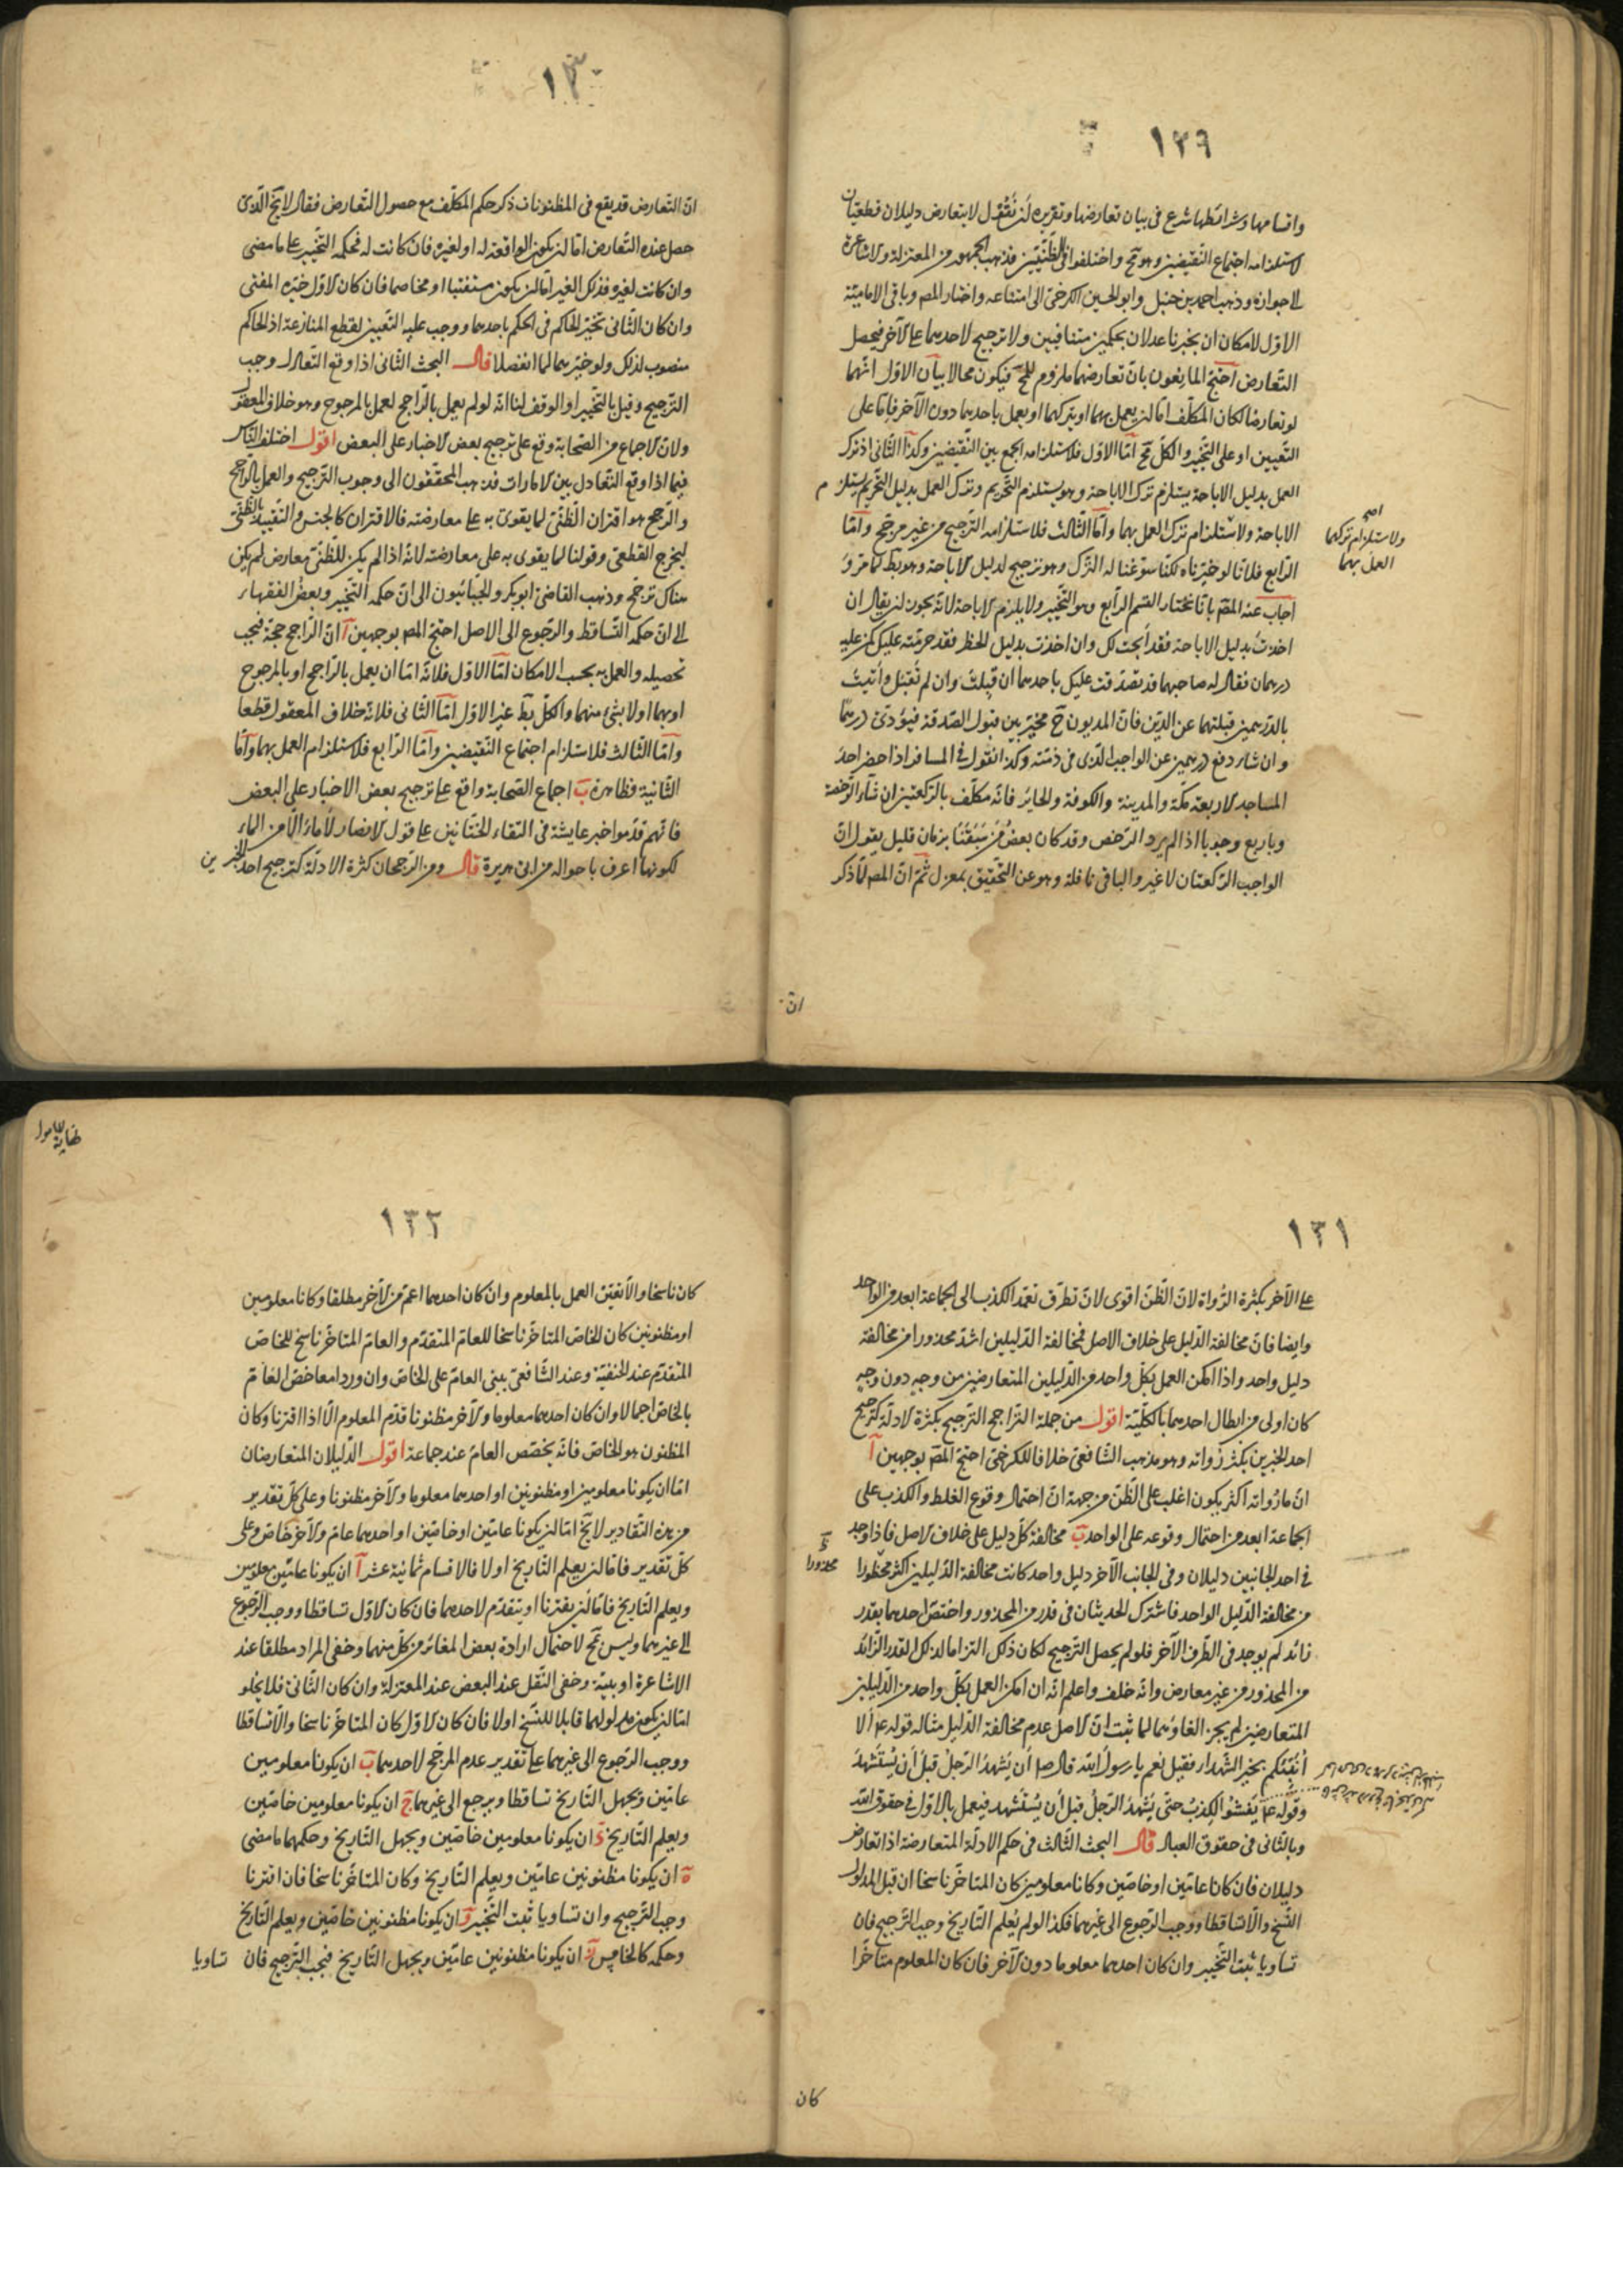 ١٢٩
واقسامها وشرائطها شرع في بيان تعارضها وتقريره أن نقول لا يتعارض دليلان قطعيان
لاستلزامه اجتماع النقيضين وهو مح واختلفوا في الظنيين فذهب الجمهور من المعتزلة والاشاعرة
الى جوازه وذهب احمد بن حنبل وابو الحسين الكرخي الى امتناعه واختار المص وباقي الامامية
الاول لامكان ان يخبرنا عدلان بحكمين متنافيين ولا ترجيح لاحدهما على الآخر فيحصل
التعارض احتج المانعون بان تعارضهما ملزوم للمح فيكون محالا بيان الاول انهما
لو تعارضا لكان المكلف اما ان يعمل بهما او يتركهما او يعمل باحدهما دون الآخر فاما على
التعيين او على التخيير والكل مح اما الاول فلاستلزامه الجمع بين النقيضين وكذا الثاني اذ ترك
العمل بدليل الاباحة يستلزم ترك الاباحة وهو يستلزم التحريم وترك العمل بدليل التحريم يستلزم
الاباحة ولاستلزام ترك العمل بهما واما الثالث فلاستلزامه الترجيح من غير مرجح واما
ولاستلزام تركهما
العمل بهما
الرابع فلانا لو خيرناه لكنا سوغنا له الترك وهو ترجيح لدليل الاباحة وهو بط لما مر
اجاب عنه المص بانا نختار القسم الرابع وهو التخيير ولا يلزم الاباحة لانه يجوز ان يقال ان
اخذت بدليل الاباحة فقد ابحت لك وان اخذت بدليل الحظر فقد حرمته عليك كمن عليه
درهمان فقال له صاحبهما قد تصدقت عليك باحدهما ان قبلت وان لم تقبل وأتيت
بالدرهمين قبلتهما عن الدين فان المديون ح مخير بين قبول الصدقة فيؤدي درهما
وان شاء دفع درهمين عن الواجب الذي في ذمته وكذا نقول في المسافر اذا حضر احد
المساجد الاربعة مكة والمدينة والكوفة والحائر فانه مكلف بالركعتين ان شاء الرخصة
وباربع وجوبا اذا لم يرد الترخص وقد كان بعض من سبقنا بزمان قليل يقول ان
الواجب الركعتان لا غير والباقي نافلة وهو عن التحقيق بمعزل ثم ان المص لما ذكر
ان
١٣٠
ان التعارض قد يقع في المظنونات ذكر حكم المكلف مع حصول التعارض فقال لا يخ الذي
حصل عنده التعارض اما ان يكون الواقعة له او لغيره فان كانت له فحكمه التخيير على ما مضى
وان كانت لغيره فذلك الغير اما ان يكون مستفتيا او مخاصما فان كان الاول خيره المفتي
وان كان الثاني تخير الحاكم في الحكم باحدهما ووجب عليه التعيين لقطع المنازعة اذ الحاكم
منصوب لذلك ولو خيرهما لما انفصلا قال البحث الثاني اذا وقع التعادل وجب
الترجيح وقيل بالتخيير او الوقف لنا انه لو لم يعمل بالراجح لعمل بالمرجوح وهو خلاف المعقول
ولان الاجماع من الصحابة وقع على ترجيح بعض الاخبار على البعض اقول اختلف الناس
فيما اذا وقع التعادل بين الامارات فذهب المحققون الى وجوب الترجيح والعمل بالراجح
والترجيح هو اقتران الظني لما يقوى به على معارضته فالاقتران كالجنس والتقييد بالظني
ليخرج القطعي وقولنا لما يقوى به على معارضته لانه اذا لم يكن للظني معارض لم يكن
هناك ترجيح وذهب القاضي ابو بكر والجبائيون الى ان حكمه التخيير وبعض الفقهاء
الى ان حكمه التساقط والرجوع الى الاصل احتج المص بوجهين آ ان الراجح حجة فيجب
تحصيله والعمل به بحسب الامكان اما الاول فلانه اما ان يعمل بالراجح او بالمرجوح
او بهما او لا بشئ منهما والكل بط غير الاول اما الثاني فلانه خلاف المعقول قطعا
واما الثالث فلاستلزام اجتماع النقيضين واما الرابع فلاستلزام العمل بهما واما
الثانية فظاهرة ب اجماع الصحابة واقع على ترجيح بعض الاخبار على البعض
فانهم قدموا خبر عايشة في التقاء الختانين على قول الانصار الماء من الماء
لكونها اعرف باحواله من ابي هريرة قال ومن الرجحان كثرة الادلة كترجيح احد الخبرين
١٣١
على الآخر بكثرة الرواة لان الظن اقوى لان تطرق تعمد الكذب الى الجماعة ابعد من الواحد
وايضا فان مخالفة الدليل على خلاف الاصل فمخالفة الدليلين اشد محذورا من مخالفة
دليل واحد واذا امكن العمل بكل واحد من الدليلين المتعارضين من وجه دون وجه
كان اولى من ابطال احدهما بالكلية اقول من جملة التراجيح الترجيح بكثرة الادلة كترجيح
احد الخبرين بكثرة رواته وهو مذهب الشافعي خلافا للكرخي احتج المص بوجهين آ
ان ما رواته اكثر يكون اغلب على الظن من جهة ان احتمال وقوع الغلط والكذب على
الجماعة ابعد من احتمال وقوعه على الواحد ب مخالفة كل دليل على خلاف الاصل فاذا وجد
في احد الجانبين دليلان وفي الجانب الآخر دليل واحد كانت مخالفة الدليلين اكثر محظورا
محذورا
من مخالفة الدليل الواحد فاشترك الحديثان في قدر من المحذور واختص احدهما بقدر
زائد لم يوجد في الطرف الآخر فلو لم يحصل الترجيح لكان ذلك التزاما لذلك القدر الزائد
من المحذور من غير معارض وانه خلف واعلم انه ان امكن العمل بكل واحد من الدليلين
المتعارضين لم يجز الغاؤهما لما ثبت ان الاصل عدم مخالفة الدليل مثاله قوله ع م ألا
أنبئكم بخير الشهداء فقيل نعم يا رسول الله قال ص أن يشهد الرجل قبل أن يستشهد
وقوله ع م يفشو الكذب حتى يشهد الرجل قبل أن يستشهد فيعمل بالاول في حقوق الله
وبالثاني في حقوق العباد قال البحث الثالث في حكم الادلة المتعارضة اذا تعارض
دليلان فان كانا عامين او خاصين وكانا معلومين كان المتاخر ناسخا ان قبل المدلول
النسخ والا تساقطا ووجب الرجوع الى غيرهما فكذا لو لم يعلم التاريخ وجب الترجيح فان
تساويا ثبت التخيير وان كان احدهما معلوما دون الآخر فان كان المعلوم متاخرا
كان
نهاية
١٣٢
كان ناسخا والا تعين العمل بالمعلوم وان كان احدهما اعم من الآخر مطلقا وكانا معلومين
او مظنونين كان الخاص المتاخر ناسخا للعام المتقدم والعام المتاخر ناسخ للخاص
المتقدم عند الحنفية وعند الشافعي يبنى العام على الخاص وان وردا معا خص العام
بالخاص اجمالا وان كان احدهما معلوما والآخر مظنونا قدم المعلوم الا اذا اقترنا وكان
المظنون هو الخاص فانه يخصص العام عند جماعة اقول الدليلان المتعارضان
اما ان يكونا معلومين او مظنونين او احدهما معلوما والآخر مظنونا وعلى كل تقدير
من هذه التقادير لا يخ اما ان يكونا عامين او خاصين او احدهما عام والآخر خاص وعلى
كل تقدير فاما ان يعلم التاريخ او لا فالاقسام ثمانية عشر آ ان يكونا عامين معلومين
ويعلم التاريخ فاما ان يقترنا او يتقدم احدهما فان كان الاول تساقطا ووجب الرجوع
الى غيرهما وليس مح لاحتمال ارادة بعض المغائر من كل منهما وخفي المراد مطلقا عند
الاشاعرة او بينة وخفي النقل عند البعض عند المعتزلة وان كان الثاني فلا يخلو
اما ان يكون مدلولهما قابلا للنسخ او لا فان كان الاول كان المتاخر ناسخا والا تساقطا
ووجب الرجوع الى غيرهما على تقدير عدم المرجح لاحدهما ب ان يكونا معلومين
عامين ويجهل التاريخ تساقطا ويرجع الى غيرهما ج ان يكونا معلومين خاصين
ويعلم التاريخ د ان يكونا معلومين خاصين ويجهل التاريخ وحكمهما ما مضى
ه ان يكونا مظنونين عامين ويعلم التاريخ وكان المتاخر ناسخا فان اقترنا
وجب الترجيح وان تساويا ثبت التخيير و ان يكونا مظنونين خاصين ويعلم التاريخ
وحكمه كالخامس ز ان يكونا مظنونين عامين ويجهل التاريخ فيجب الترجيح فان تساويا